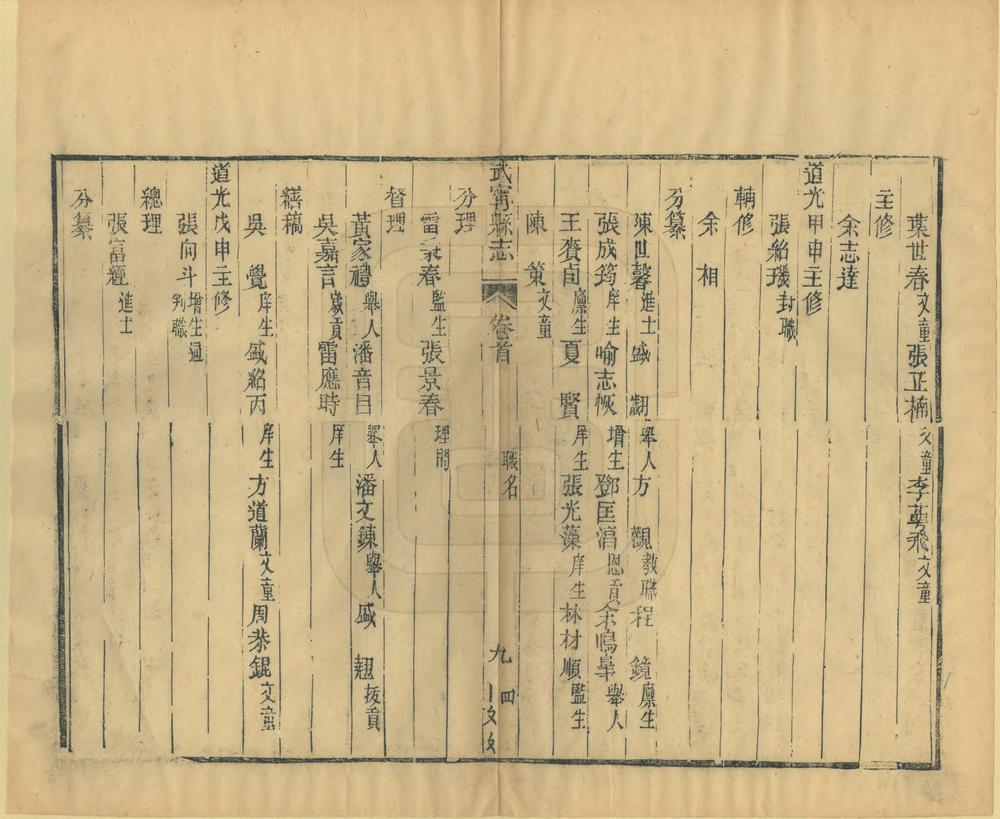 葉世春文童張正楠文童李萬飛文童
主修
余志達
道光甲申主修
張紹璣封職
輔修
余相
分纂
陳世馨進士盛𠟭舉人方觀教職程鏡廩生
張成筠庠生喻志恢增生鄧匡濇恩貢余鳴皋舉人
王賡卣廩生夏賢庠生張光藻庠生林材順監生
陳策文童
武甯縣志 卷首 職名 九 四
分理
雷泰春監生張景春理問
督理
黃家禮舉人潘音目舉人潘文鍊舉人盛翹拔貢
吳嘉言歲貢雷應時庠生
繕稿
吳覺庠生盛紹丙庠生方道蘭文童周恭錕文童
道光戊申主修
張向斗增生通判職
總理
張富經進士
分纂